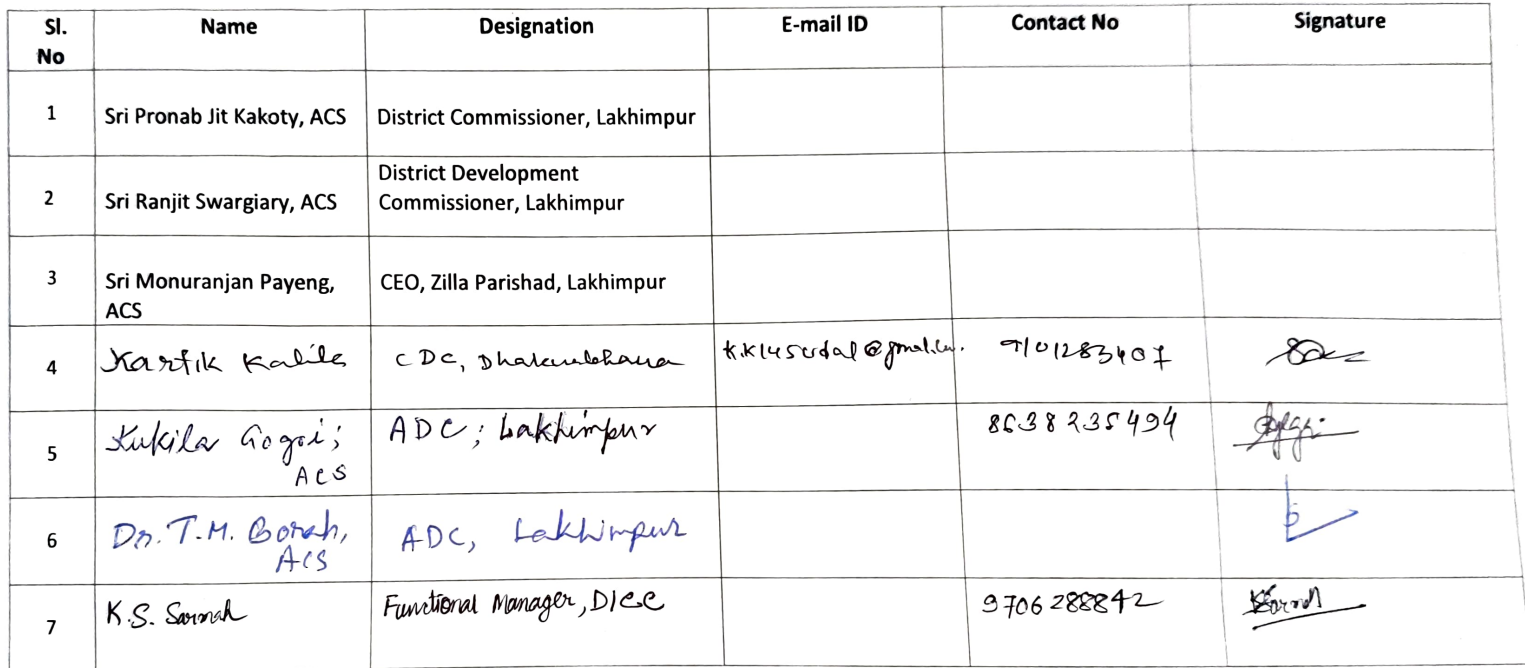 Sl. No Name Designation E-mail ID Contact No Signature
1 Sri Pronab Jit Kakoty, ACS District Commissioner, Lakhimpur
2 Sri Ranjit Swargiary, ACS District Development Commissioner, Lakhimpur
3 Sri Monuranjan Payeng, ACS CEO, Zilla Parishad, Lakhimpur
4 Kartik Kalita CDC, Dhakuakhana 9101283407
5 Kukila Gogoi; ACS ADC; Lakhimpur 8638235494
6 Dr. T.M. Borah, ACS ADC, Lakhimpur
7 K.S. Sarmah Functional Manager, DICC 9706288842